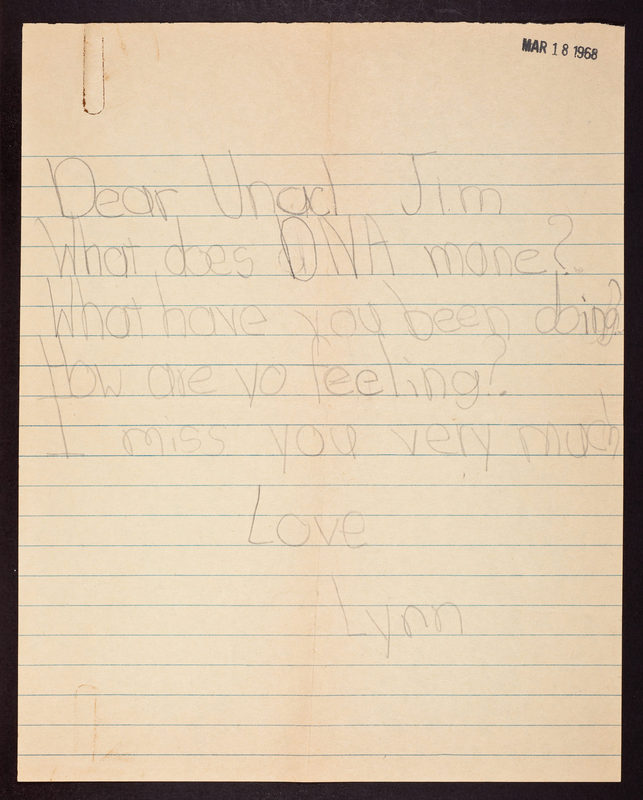 MAR 18 1968
Dear Uncl Jim
What does DNA mone?
What have you been doing?
How are yo feeling?
I miss you very much
Love
Lynn